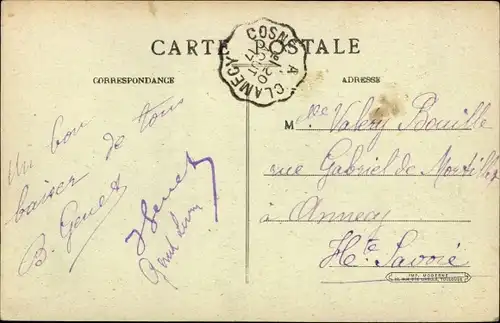 CARTE POSTALE
COSNE A CLAMECY
CORRESPONDANCE
ADRESSE
Un bon
baiser de tous
B. Genet
M lle Valéry Bouille
rue Gabriel de Mortillet
à Annecy
Hte Savoie
IMP. MODERNE